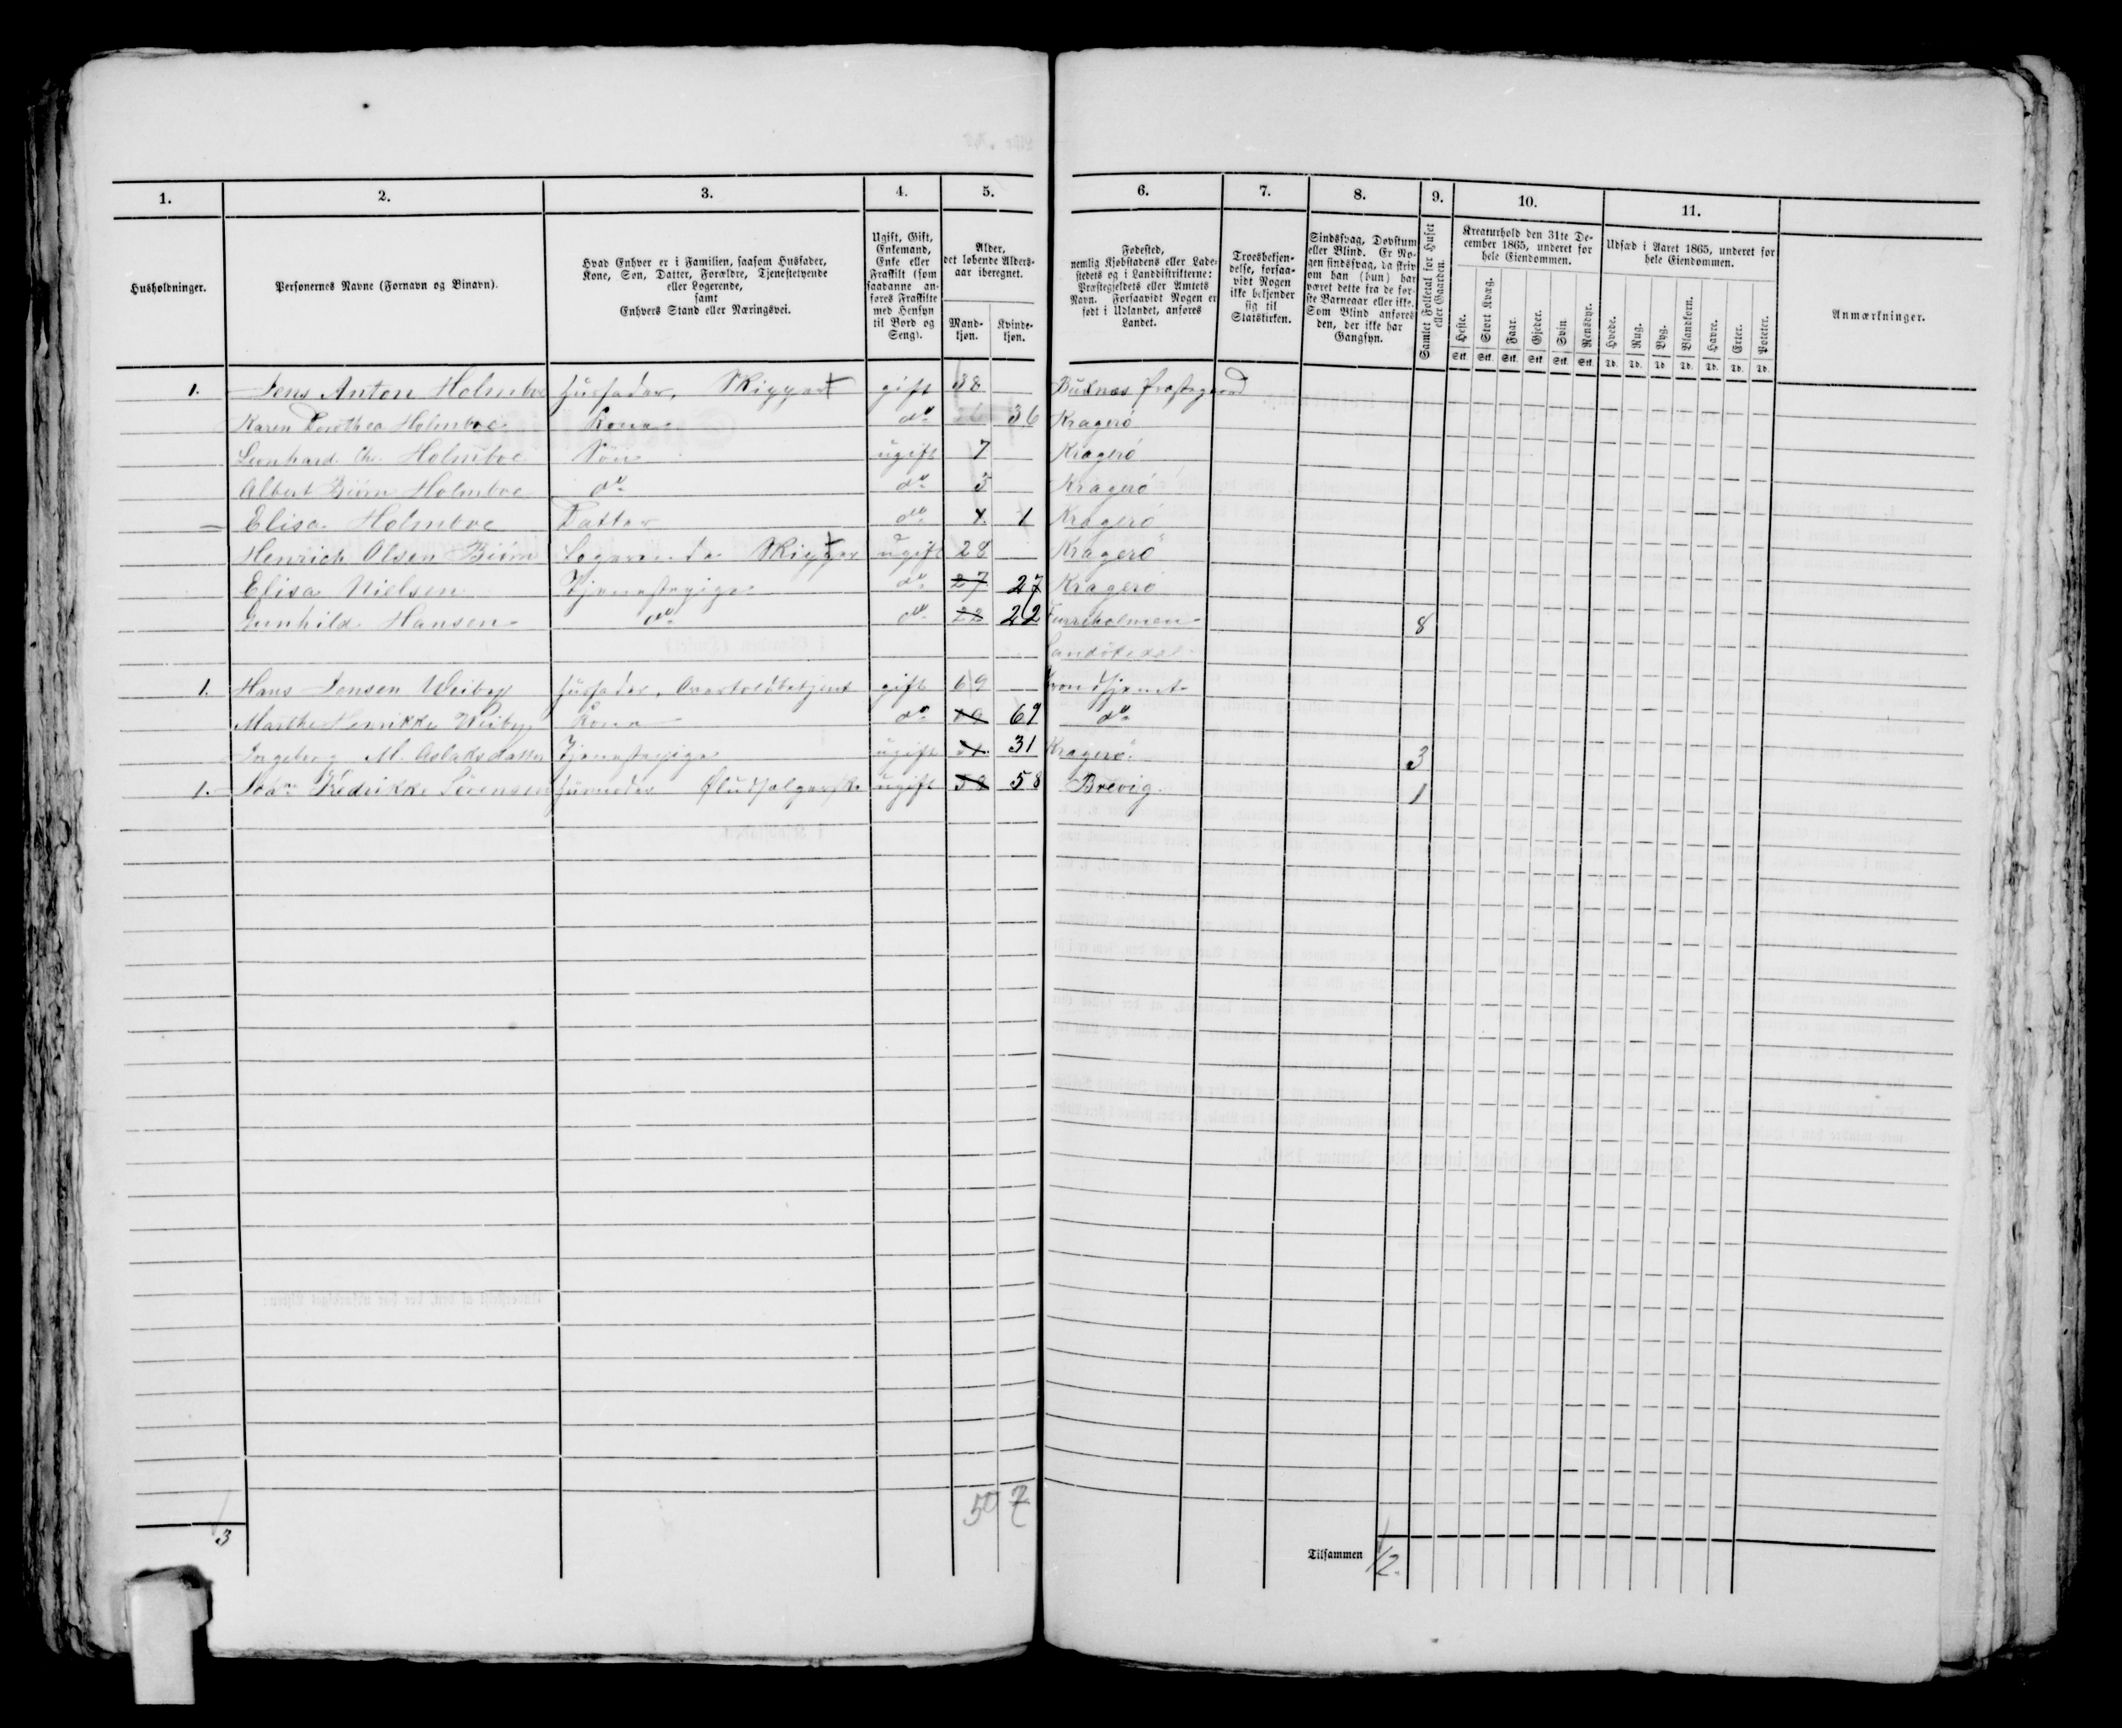 1. 2. 3. 4. 5. 6. 7. 8. 9. 10. 11.
Husholdninger.
Personernes Navne (Fornavn og Binavn).
Hvad Enhver er i Familien, saasom Husfader,
Kone, Søn, Datter, Forældre, Tjenestetyende
eller Logerende,
samt
Enhvers Stand eller Næringsvei.
Ugift, Gift,
Enkemand,
Enke eller
Fraskilt (som
saadanne an-
føres Fraskilte
med Hensyn
til Bord og
Seng).
Alder,
det løbende Alders-
aar iberegnet.
Mand-
kjøn.
Kvinde-
kjøn.
Fødested,
nemlig Kjøbstadens eller Lade-
stedets og i Landdistrikterne:
Præstegjeldets eller Amtets
Navn. Forsaavidt Nogen er
født i Udlandet, anføres
Landet.
Troesbekjen-
delse, forsaa-
vidt Nogen
ikke bekjender
sig til
Statskirken.
Sindssvag, Døvstum
eller Blind. Er No-
gen sindssvag, da skriv
om han (hun) har
været dette fra de før-
ste Barneaar eller ikke.
Som Blind anføres
den, der ikke har
Gangsyn.
Samlet Folketal for Huset
eller Gaarden.
Kreaturhold den 31te De-
cember 1865, underet for
hele Eiendommen.
Heste. Stort Kvæg. Faar. Gjeder. Svin. Rensdyr.
Stk. Stk. Stk. Stk. Stk. Stk.
Udsæd i Aaret 1865, underet for
hele Eiendommen.
Hvede. Rug. Byg. Blandkorn. Havre. Erter. Poteter.
Td. Td. Td. Td. Td. Td. Td.
Anmærkninger.
1. Jens Anton Holmboe Husfader, Skipper gift 38
Karen Dorothea Holmboe Kone do 36 Kragerö
Leonhard Chr. Holmboe Sön ugift 7 Kragerö
Albert Biörn Holmboe do do 3 Kragerö
Elisa Holmboe Datter do 1 1 Kragerö
Henrich Olsen Biörn Logerende Skipper ugift 28 Kragerö
Elisa Nielsen Tjenestepige do 27 27 Kragerö
Gunhild Hansen do do 22 22 8
1. Hans Jensen Weiby Husfader, Overtoldbetjent gift 69
Marthe Henrikke Weiby Kone do 69 do
Ingeborg M. Aslaksdatter Tjenestepige ugift 31 Kragerö 3
1. Fredrikke Sörensen Husmoder ugift 58 58 Brevig 1
3
5 7
Tilsammen 12.